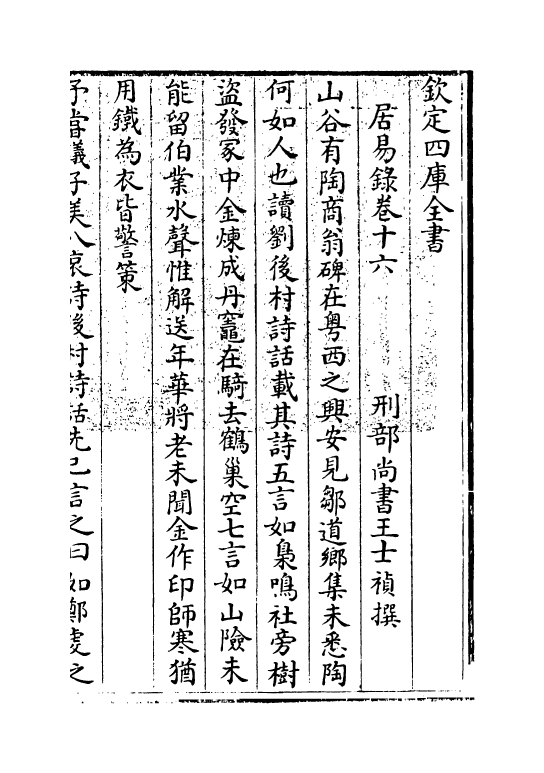 欽定四庫全書
居易錄卷十六
刑部尚書王士禎撰
山谷有陶商翁碑在粤西之興安見鄒道鄉集未悉陶
何如人也讀劉後村詩話載其詩五言如梟鳴社旁樹
盜發冢中金煉成丹竈在騎去鶴巢空七言如山險未
能留伯業水聲惟解送年華將老未聞金作印師寒猶
用鐵為衣皆警策
予嘗議子美八哀詩後村詩話先已言之曰如鄭䖍之